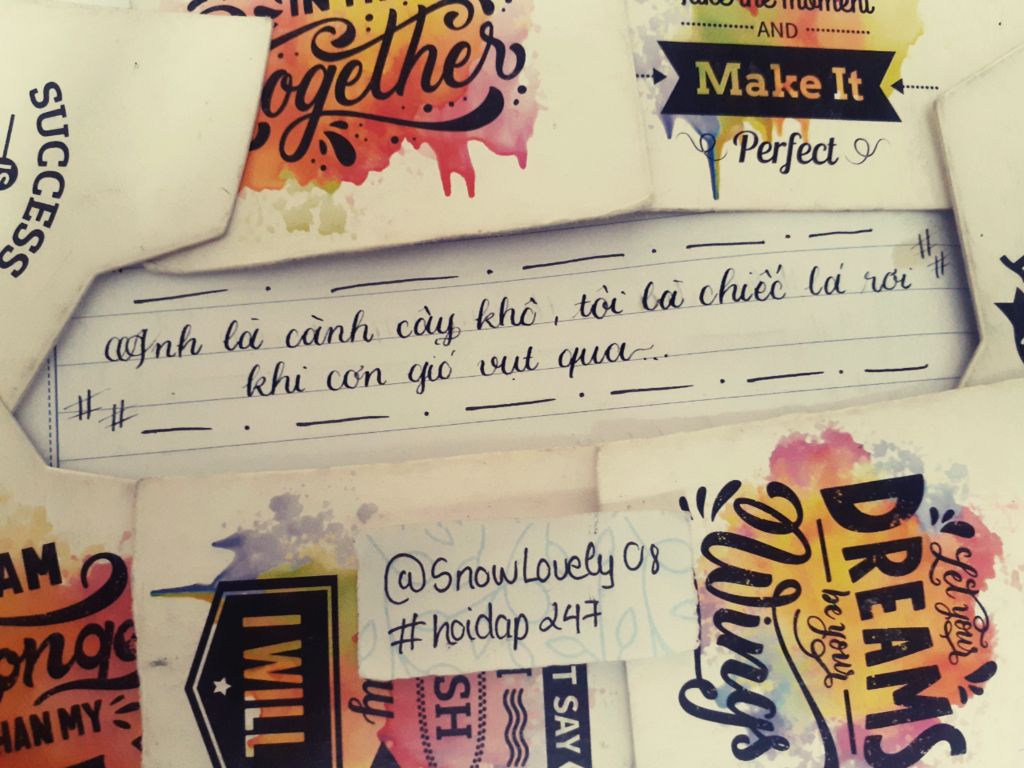 IN
Together
Take the moment
AND
Make It
Perfect
SUCCESS
IS
Anh là cành cây khô, tôi là chiếc lá rơi
khi cơn gió vụt qua...
@SnowLovely08
#hoidap247
AM
HAN MY
I WILL
SH
T SAY
Let your
DREAMS
be your
Wings